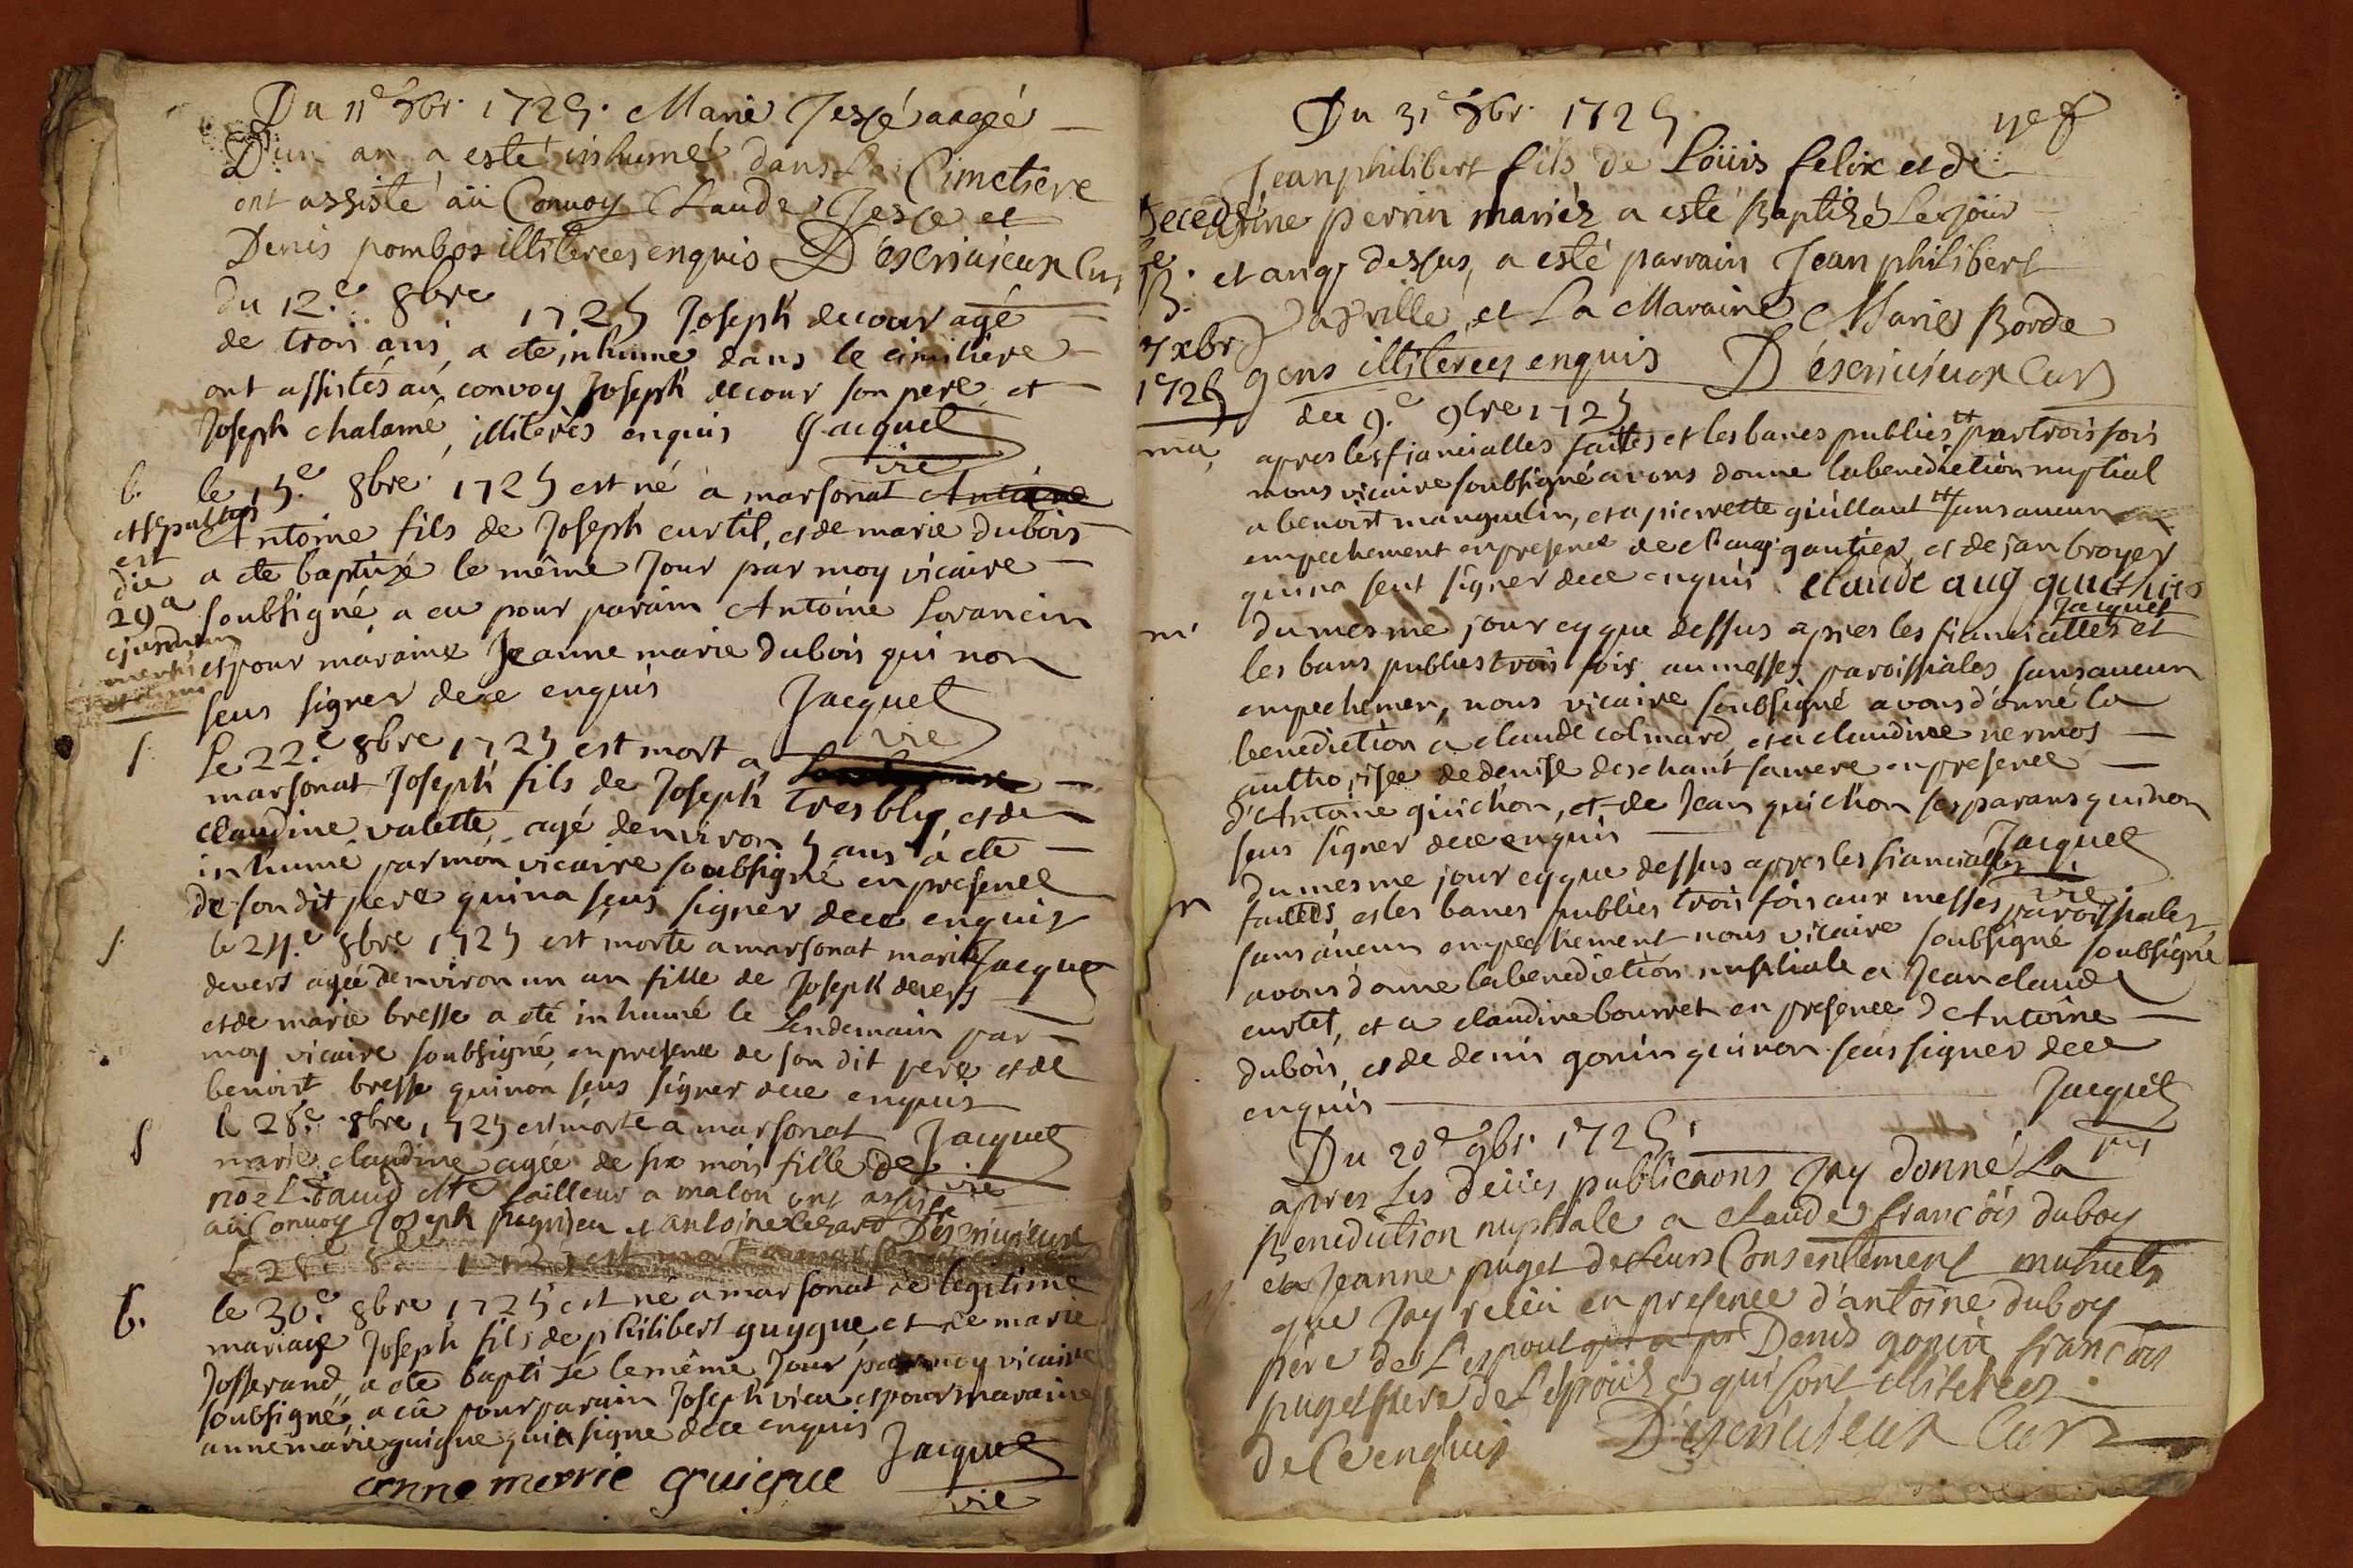 Du 11e 8br. 1725. Marie Jessé aagée
D'un an a esté inhumé dans Le Cimetiere
ont assisté aü Convoy Claude Jesse et
Denis pombos illiterees enquis D'escriuieux Cur
du 12.e 8bre 1725 Joseph decour agé
de trois ans, a ete inhumé dans le cimitiere
ont assistés au convoy Joseph decour son pere et
Joseph chalamé, illiterès enquis Jacquet
vic
b. le 15.e 8bre 1725 est né a marsonat Antoine
et sepultus est die 29a ejusdem mensis
Antoine fils de Joseph curtil, et de marie dubois
a ete baptizé le même Jour par moy vicaire
soubsigné a eu pour parain Antoine Lorancin
et pour maraine Jeanne marie dubois qui non
seus signer dece enquis Jacquet
vic
s. Le 22.e 8bre 1725 est mort a
marsonat Joseph fils de Joseph Tresbly, et de
claudine valette, agé denviron 5 ans a ete
inhumé par mon vicaire soubsigné en presence
de son dit pere qui na seus signer dece enquis
s. le 24.e 8bre 1725 est morte a marsonat marie Jacquet
devers agée denviron un an fille de Joseph devers
et de marie bresse a eté inhumé le Lendemain par
moy vicaire soubsigné, en presence de son dit pere et de
benoist bresse qui non seus signer dece enquis
s le 28.e 8bre 1725 est morte a marsonat Jacquet
vic
marie claudine agée de six mois fille de
noel david Mte tailleur a malon ont assiste
aü Convoy Joseph et antoine Descriuieux
Le 28e 8bre 1725 est mort a marsonat
b. le 30.e 8bre 1725 est né a marsonat de legitime
mariage Joseph fils de philibert guygue et de marie
Josserand, a ete baptisé le même Jour par moy vicaire
soubsigné, a eü pour parain Joseph vieu et pour maraine
anne marie guigue qui a signe dece enquis
anne marie guigue Jacquet
vic
Du 31e 8br. 1725
Jean philibert fils de Loüis felix et de
perrin mariéz a esté Baptizé Le joür
Decedé le
B. et an q dessus, a esté parrain Jean philibert
ville et La Maraine Maries Borde
7 xbr 1725
gens illiterees enquis D'escriuieux Cur
du 9.e 9bre 1725
ma, apres les fiancialles faites et les bancs publies par trois fois
nous vicaire soubsigné avons donne la benediction nuptial
a benoist manguelin, et a pierrette guillaut sans aucun
empechement en presence de cl. aug. gautier et de jan broyer
qui na seut signer dece enquis claude aug gauthier
Jacquet
m du mesme jour cy que dessus apres les fiancialles et
les bans publies trois fois au messes paroissiales sans aucun
empechemen, nous vicaire soubsigné avons donné la
benediction a claude colmard, et a claudine nermos
authorisee de denise deschant sa mere en presence
d'Antoine guichon, et de Jean guichon ses parans qui non
seus signer dece enquis Jacquet
vic
m du mesme jour cy que dessus apres les fiancialles
faittes et les bancs publies trois fois aux messes paroissiales
sans aucun empechement nous vicaire soubsigné soubsigné
avons donne la benediction nuptiale a Jean claude
curtet, et a claudine bourret en presence d'Antoine
dubois, et de denis gonin qui non seus signer dece
enquis Jacquet
Du 20e 9br. 1725.
apres Les Deües publicãons Jay donné La
Benediction nuptiale a Claude françois duboy
et a Jeanne puget de Leurs Consentement mutuels
que Jay receü en presence d'antoine duboy
père de Lespoux Denis gonin françois
puget pere de Lespoüse qui sont illiterees
de Ce enquis D'escriuieux Cur